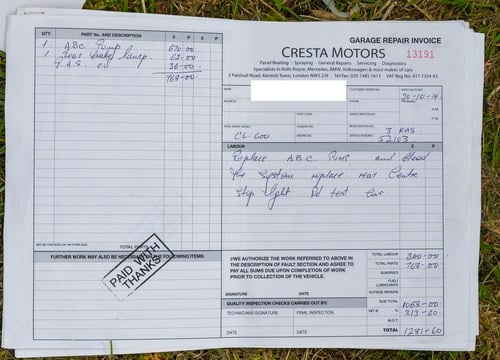 QTY. PART No. AND DESCRIPTION £ P £ P
1 A.B.C Pump 670-00
1 Rear Brake Lamp 62-00
36-00
768-00
MAY BE CONTINUED ON THE OTHER SIDE
TOTAL PARTS
FURTHER WORK MAY ALSO BE NECESSARY ON THE FOLLOWING ITEMS:
PAID WITH
THANKS
GARAGE REPAIR INVOICE
CRESTA MOTORS 13191
Panel Beating - Spraying - General Repairs - Servicing - Diagnostics
Specialists in Rolls Royce, Mercedes, BMW, Volkswagen & most makes of cars
3 Patshull Road, Kentish Town, London NW5 2JX - Tel/fax 020 7485 1613 - VAT Reg No: 417 7354 43
NAME
CUSTOMER ORDER NO.
ADDRESS
POST CODE
YEAR, MAKE, MODEL
CL 600
CHASSIS NO.
REGISTRATION NO.
3 KAS
ENGINE NO.
52103
LABOUR £ P
Replace A.B.C Pump and bleed
the System replace rear Centre
Stop light test Car
I/WE AUTHORIZE THE WORK REFERRED TO ABOVE IN
THE DESCRIPTION OF FAULT SECTION AND AGREE TO
PAY ALL SUMS DUE UPON COMPLETION OF WORK
PRIOR TO COLLECTION OF THE VEHICLE.
SIGNATURE DATE
QUALITY INSPECTION CHECKS CARRIED OUT BY:
TECHNICIANS SIGNATURE FINAL INSPECTION
DATE DATE
TOTAL LABOUR 300-00
TOTAL PARTS 768-00
SUNDRIES
FUEL/
LUBRICANTS
OUTSIDE REPAIRS
SUB TOTAL 1068-00
VAT @ % 213-60
M.O.T.
TOTAL 1281-60